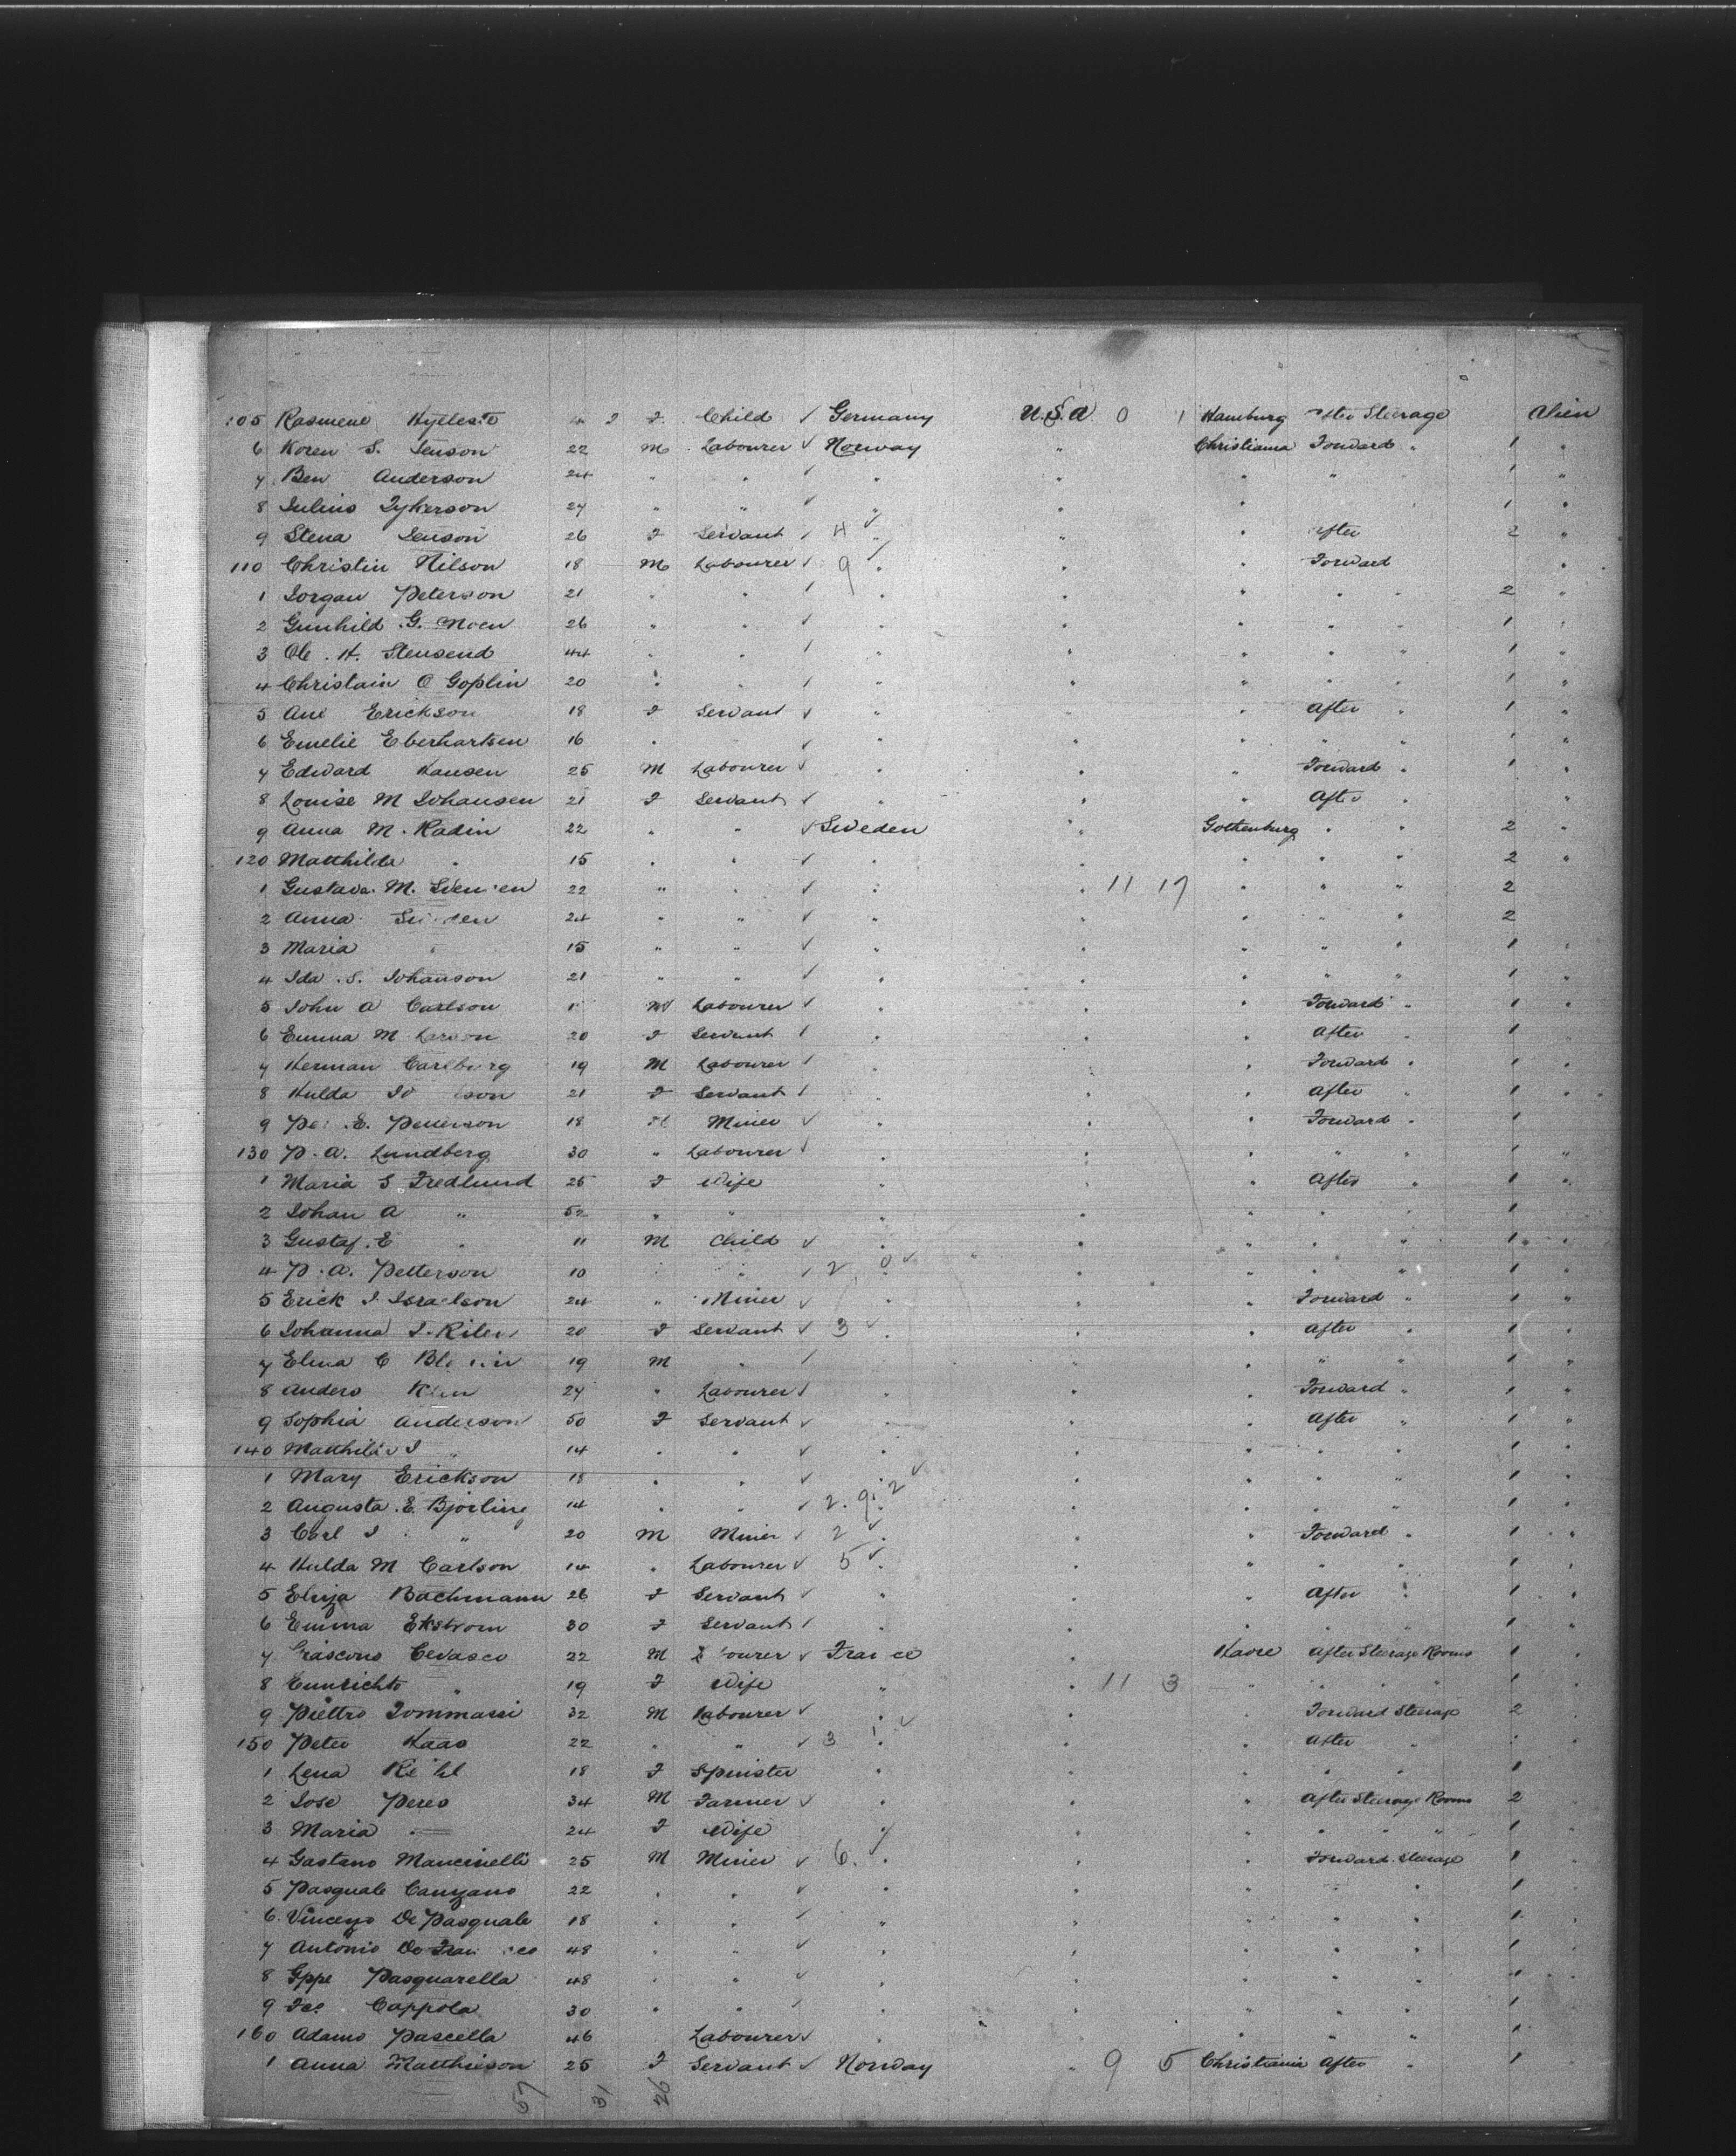 105 Rasmene Hyeleste 4 2 F. Child ✓ Germany U.S.A. 0 1 Hamburg Steerage Alien
6 Koren S. Jenson 22 M Labourer ✓ Norway " Christiania Forward " 1 "
7 Ben Anderson 24 " " ✓ " " " " 1 "
8 Julius Tykerson 27 " " ✓ " " " 1 "
9 Stena Jenson 26 F Servant ✓ 4 ✓ " " " After 2 "
110 Christin Nilson 18 M Labourer ✓ 9 ✓ " " " Forward "
1 Jorgan Peterson 21 " " ✓ " " " " " 2 "
2 Gunhild G. Moen 26 " " ✓ " " " " " 1 "
3 Ole H. Stensend 44 " " ✓ " " " " " 1 "
4 Christain O Goplin 20 " " ✓ " " " " " 1 "
5 Ane Erickson 18 F Servant ✓ " " " After " 1 "
6 Emelie Eberhartsen 16 " " ✓ " " " " " 1 "
7 Edward Hansen 25 M Labourer ✓ " " " Forward " 1 "
8 Louise M Johansen 21 F Servant ✓ " " " After " "
9 Anna M. Radin 22 " " ✓ Sweden " Gothenburg " " 2 "
120 Matthilda " 15 " " ✓ " " " " " 2 "
1 Gustava M. 22 " " ✓ " " 11 17 " " " 2
2 Anna 24 " " ✓ " " " " " 2
3 Maria " 15 " " ✓ " " " " " 1 "
4 Ida S. Johanson 21 " " ✓ " " " " " 1 "
5 John A Carlson M Labourer ✓ " " " Forward " 1 "
6 Emma M Larson 20 F Servant ✓ " " " After " 1 "
7 Herman Carlberg 19 M Labourer ✓ " " " Forward " 1 "
8 Hulda 21 F Servant ✓ " " " After " 1 "
9 E. Petterson 18 M Miner ✓ " " Forward " 1
130 P. A. Lundberg 30 " Labourer ✓ " " " " " 1 "
1 Maria S Fredlund 25 F Wife " " " After " 1 "
2 Johan A " 52 " " " " " " 1 "
3 Gustaf E " 11 M Child ✓ " " " " " 1 "
4 P. A. Petterson 10 " " ✓ 2 0 ✓ " " " 1 "
5 Erick J Israelson 24 " Miner ✓ " " " Forward " 1 "
6 Johanna J. 20 F Servant ✓ 3 ✓ " " " After " 1 "
7 Elina C 19 M " ✓ " " " " 1 "
8 Anders 27 " Labourer ✓ " " " Forward " 1 "
9 Sophia Anderson 50 F Servant ✓ " " After " 1 "
140 Matthilda J " 14 " " ✓ " " " " " 1 "
1 Mary Erickson 18 " " ✓ " ✓ " " " " 1 "
2 Augusta E. Bjorling 14 " " ✓ 2. 9. 2 " " " " 1 "
3 Carl J " 20 M Miner ✓ 2 ✓ " " " Forward " 1 "
4 Hulda M Carlson 14 " Labourer ✓ 5 ✓ " " " " " 1 "
5 Eliza Bachmann 26 F Servant ✓ " " " After " 1 "
6 Emma Ekstrom 30 F Servant ✓ " " " " " 1 "
7 Cevasco 22 M Labourer ✓ France " Havre After Steerage Rooms 1 "
8 " 19 F Wife " " 11 3 " " " " 1 "
9 Piettro Tommassi 32 M Labourer ✓ " ✓ " " Forward Steerage 2 "
150 Peter Haas 22 " " ✓ 3 1 " " After " "
1 Lena 18 F Spinster " " " " " 1
2 Jose Peres 34 M Farmer ✓ " " " After Steerage Rooms 2 "
3 Maria " 24 F Wife " " " " " " 1 "
4 Gaetano Mancinelli 25 M Miner ✓ 6. ✓ " " " Forward Steerage 1 "
5 Pasquale Canzano 22 " " ✓ " " " " " 1 "
6 Vincenzo De Pasquale 18 " " ✓ " " " " " 1 "
7 Antonio De 48 " " ✓ " " " " " 1 "
8 Gppe Pasquarella 48 " " ✓ " " " " " 1 "
9 Cappola 30 " " ✓ " " " " " 1 "
160 Adamo Pascella 46 Labourer ✓ " " " " " 1 "
1 Anna Matthieson 25 F Servant ✓ Norway " 9 5 Christiania After " 1
57 31 26